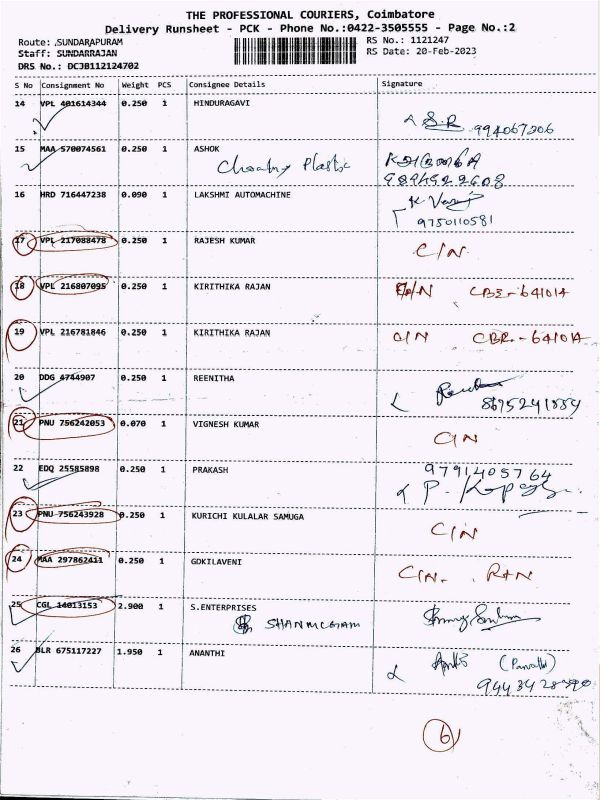 THE PROFESSIONAL COURIERS, Coimbatore
Delivery Runsheet - PCK - Phone No.:0422-3505555 - Page No.:2
Route: SUNDARAPURAM RS No.: 1121247
Staff: SUNDARRAJAN RS Date: 20-Feb-2023
DRS No.: DCJB112124702
S No Consignment No Weight PCS Consignee Details Signature
14 VPL 401614344 0.250 1 HINDURAGAVI
994067206
15 MAA 570074561 0.250 1 ASHOK
Plastic
9894922608
16 HRD 716447238 0.090 1 LAKSHMI AUTOMACHINE
9750110581
17 VPL 217088478 0.250 1 RAJESH KUMAR C/N
18 VPL 216807095 0.250 1 KIRITHIKA RAJAN CBE-641014
19 VPL 216781846 0.250 1 KIRITHIKA RAJAN C/N CBE-641014
20 DDG 4744907 0.250 1 REENITHA
8675241884
21 PNU 756242053 0.070 1 VIGNESH KUMAR C/N
22 EDQ 25585898 0.250 1 PRAKASH 9791405764
23 PNU 756243928 0.250 1 KURICHI KULALAR SAMUGA C/N
24 MAA 297862411 0.250 1 GOKILAVENI C/N.
25 CGL 14013153 2.900 1 S.ENTERPRISES
SHANMUGAM
26 BLR 675117227 1.950 1 ANANTHI
6